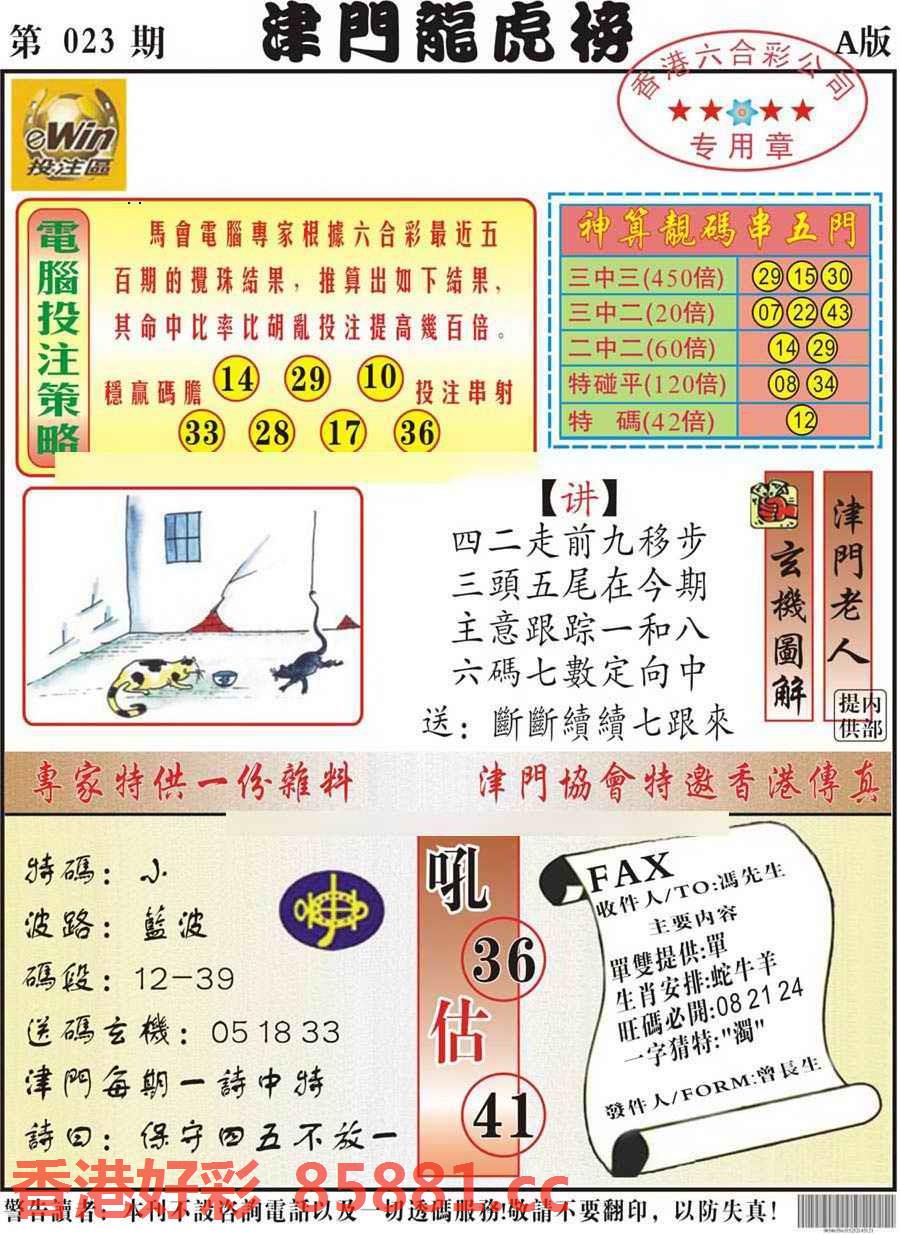 第 023 期
津門龍虎榜
A版
香港六合彩公司
专用章
eWin
投注區
電腦投注策略
馬會電腦專家根據六合彩最近五
百期的攪珠結果，推算出如下結果，
其命中比率比胡亂投注提高幾百倍。
穩贏碼膽 14 29 10 投注串射
33 28 17 36
神算靚碼串五門
三中三(450倍) 29 15 30
三中二(20倍) 07 22 43
二中二(60倍) 14 29
特碰平(120倍) 08 34
特 碼(42倍) 12
【讲】
四二走前九移步
三頭五尾在今期
主意跟踪一和八
六碼七數定向中
送：斷斷續續七跟來
玄機圖解
津門老人
内部提供
專家特供一份雜料
津門協會特邀香港傳真
特碼：小
波路：藍波
碼段：12-39
送碼玄機：05 18 33
津門每期一詩中特
詩曰：保守四五不放一
吼
36
估
41
FAX
收件人/TO:馮先生
主要内容
單雙提供:單
生肖安排:蛇牛羊
旺碼必開:08 21 24
一字猜特:"濁"
發件人/FORM:曾長生
香港好彩 85881.cc
警告讀者：本刊不設咨詢電話以及一切透碼服務!敬請不要翻印，以防失真！